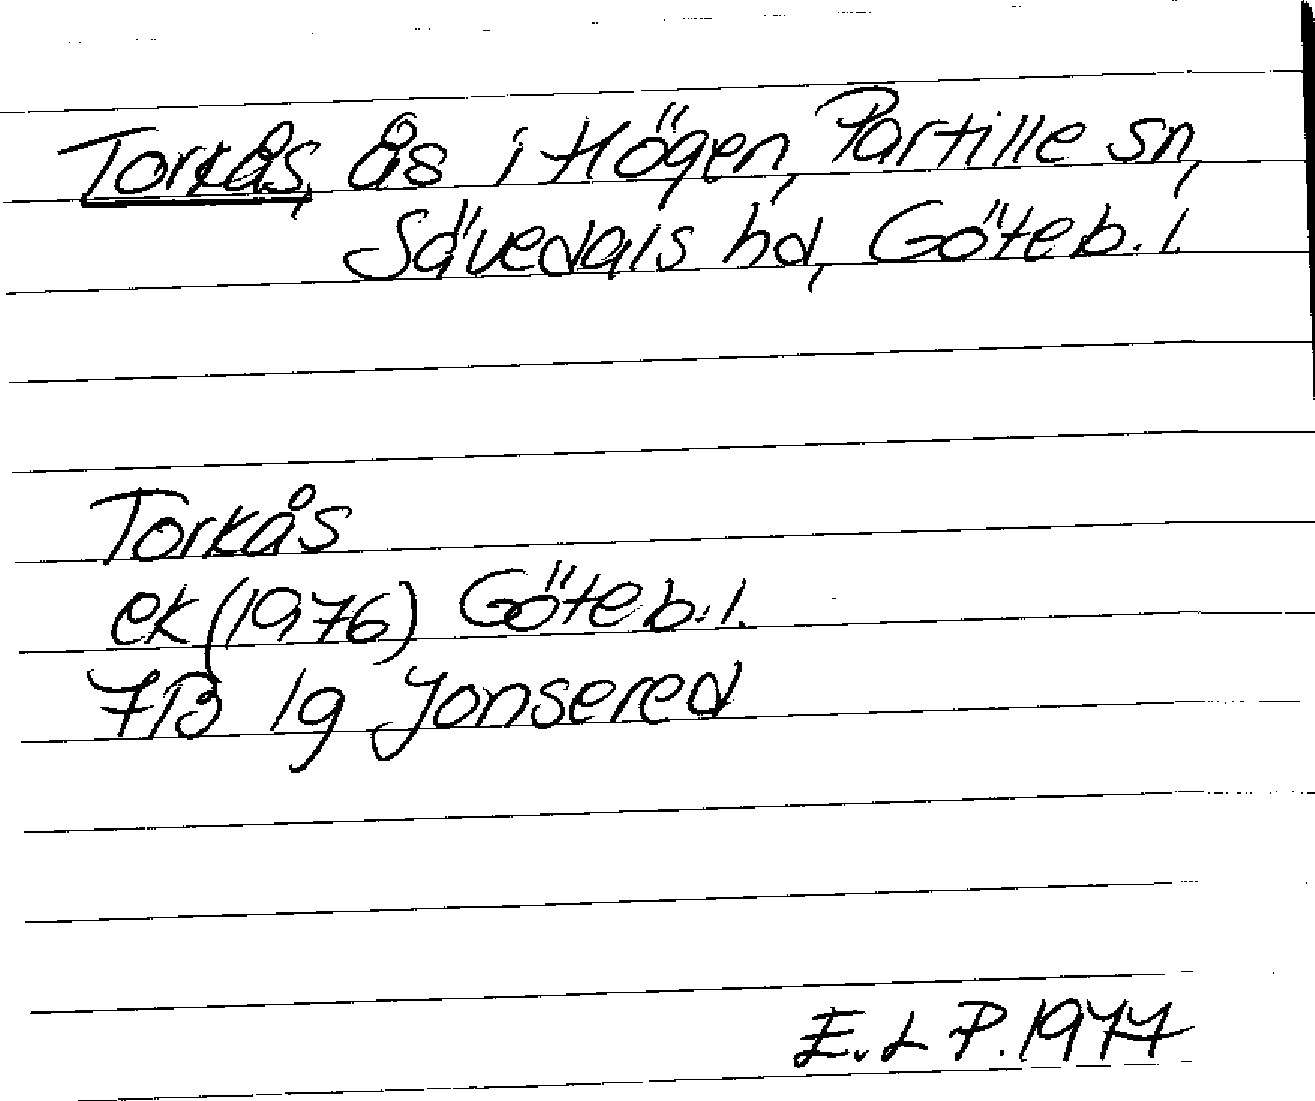 Torkås, ås i Högen, Partille sn,
Sävedals hd, Göteb. l.
Torkås
ek (1976) Göteb. l.
7B 1g Jonsered
E. L P. 1977